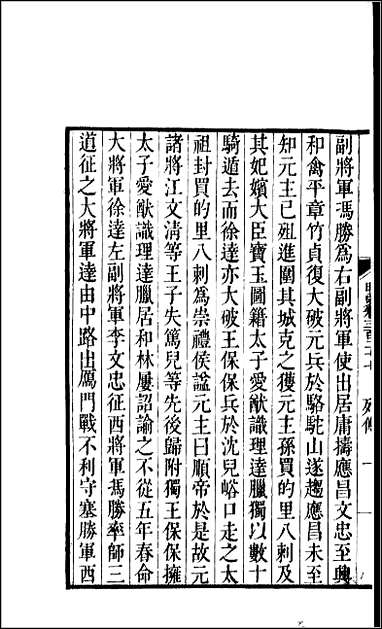 副將軍馮勝爲右副將軍使出居庸擣應昌文忠至興
和禽平章竹貞復大破元兵於駱駝山遂趨應昌未至
知元主已殂進圍其城克之獲元主孫買的里八剌及
其妃嬪大臣寶玉圖籍太子愛猷識理達臘獨以數十
騎遁去而徐達亦大破王保保兵於沈兒峪口走之太
祖封買的里八剌爲崇禮侯諡元主曰順帝於是故元
諸將江文清等王子失篤兒等先後歸附獨王保保擁
太子愛猷識理達臘居和林屢詔諭之不從五年春命
大將軍徐達左副將軍李文忠征西將軍馮勝率師三
道征之大將軍達由中路出鴈門戰不利守塞勝軍西